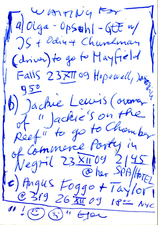 WAITING FOR
a) Olga - Opsahl - GEE w/
JS + Odin + Churchman
(driver) to go to Mayfield
Falls 23 XII 09 Hopewell,
950
b) Jackie Lewis (owner
of "Jackie's on the
Reef" to go to Chamber
of Commerce Party in
Negril 23 XII 09 2145
@ her SPA/HOTEL
c) Angus Foggo + Taylor
@ 319 26 XII 09 18°° NYC